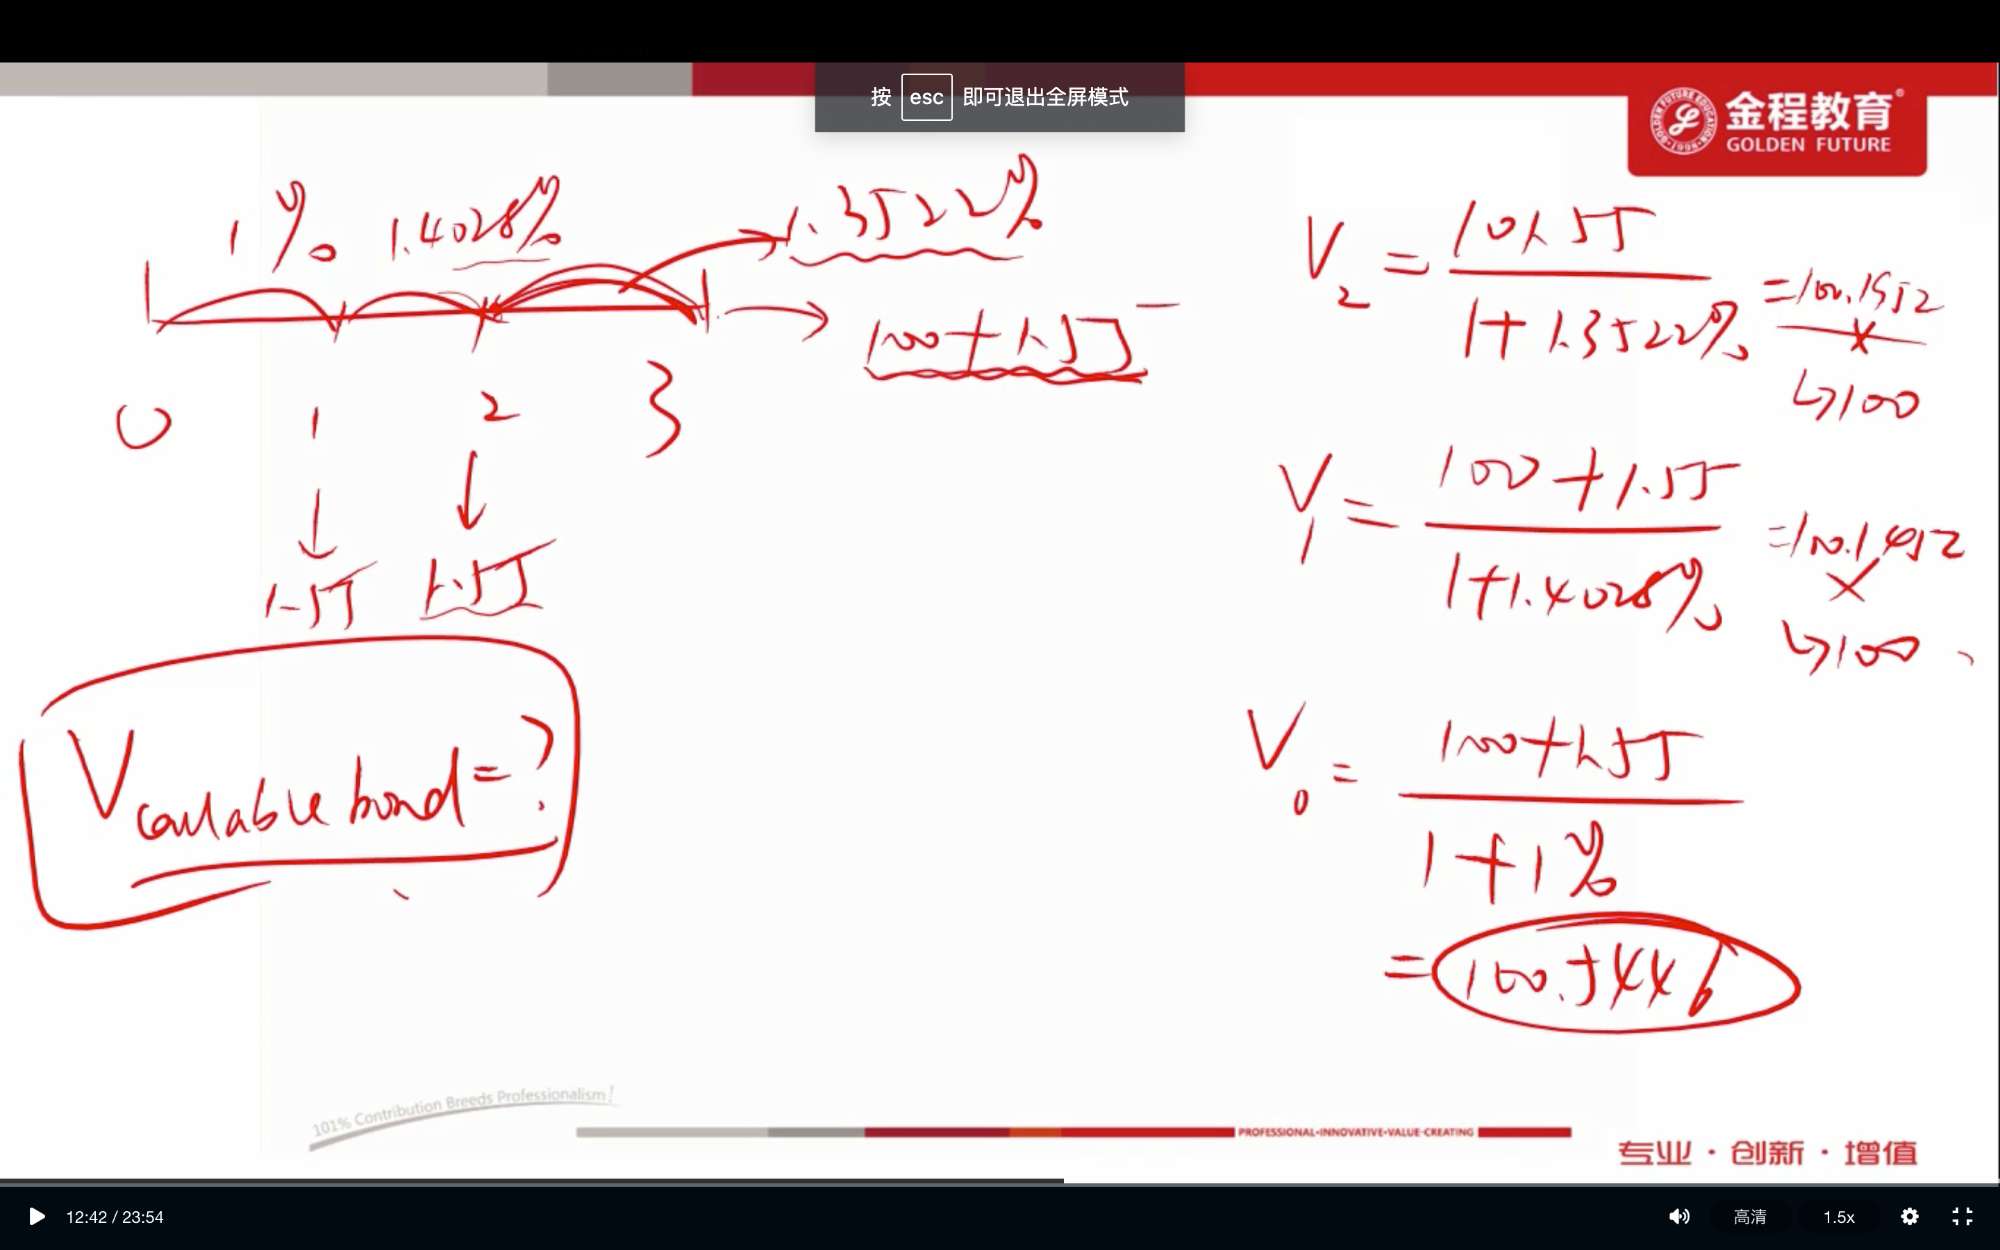 按 esc 即可退出全屏模式
金程教育®
GOLDEN FUTURE
1% 1.4028% 1.3522%
100+1.55
0 1 2 3
1.55 1.55
V callable bond = ?
V2 = 101.55 / 1+1.3522% = 100.1952
↳100
V1 = 100+1.55 / 1+1.4028% = 100.1452
↳100
V0 = 100+1.55 / 1+1%
= 100.5446
101% Contribution Breeds Professionalism!
PROFESSIONAL•INNOVATIVE•VALUE-CREATING
专业·创新·增值
12:42 / 23:54
高清
1.5x